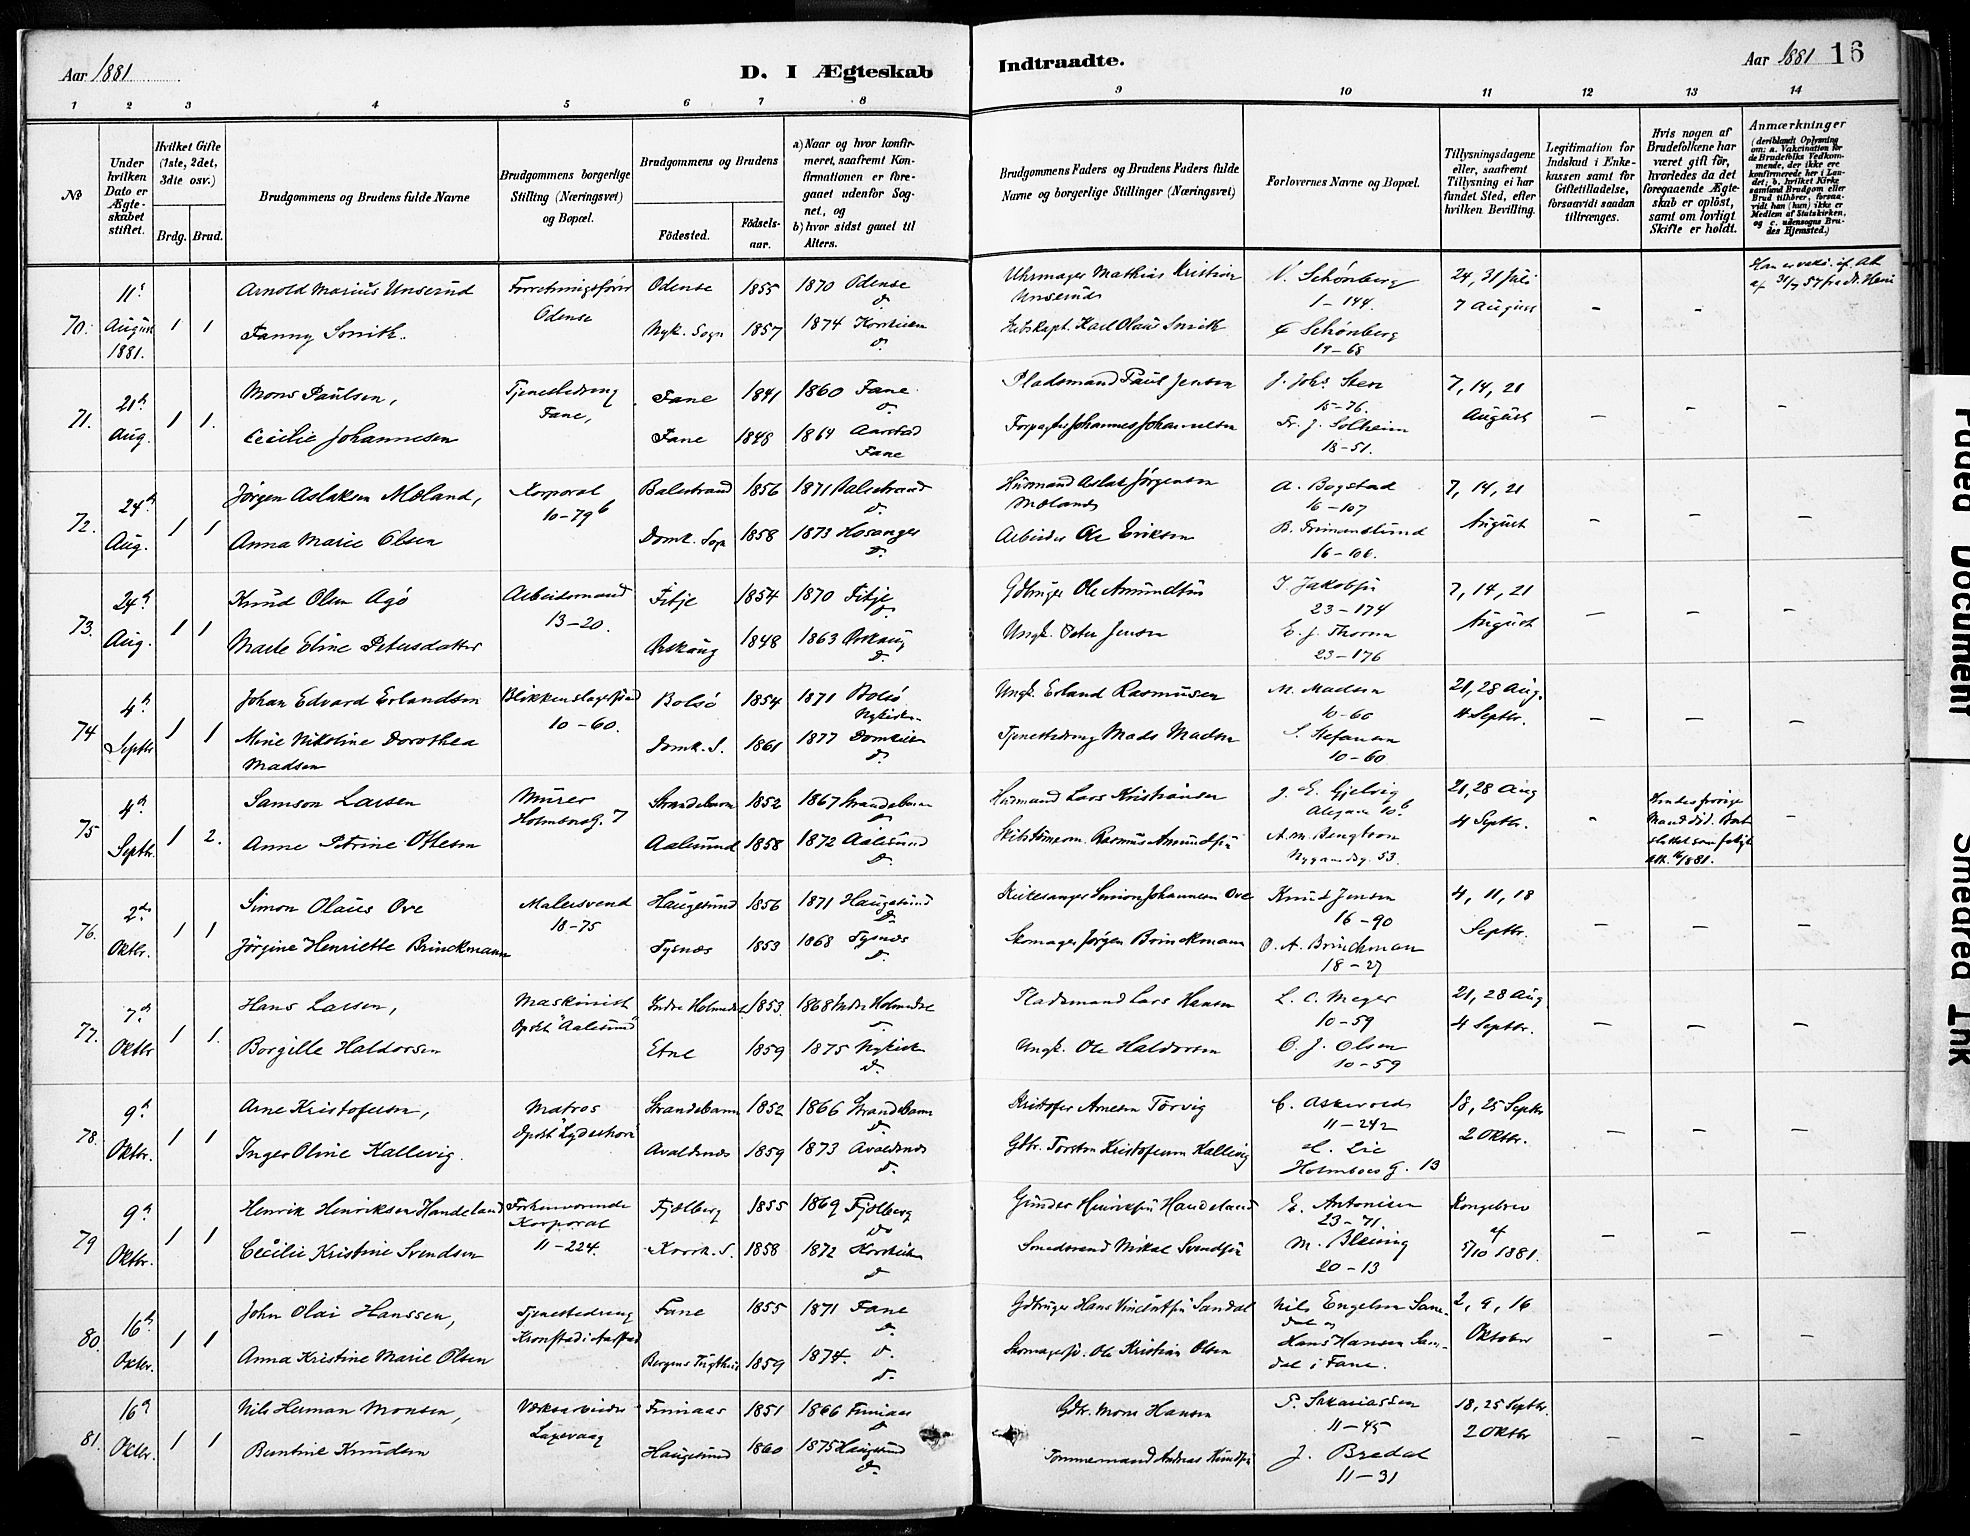 Aar 1881
D. I Ægteskab Indtraadte.
Aar 1881 16
1 2 3 4 5 6 7 8 9 10 11 12 13 14
№
Under hvilken Dato er Ægteskabet stiftet.
Hvilket Gifte (1ste, 2det, 3die osv.)
Brdg. Brud.
Brudgommens og Brudens fulde Navne
Brudgommens borgerlige Stilling (Næringsvei) og Bopæl.
Brudgommens og Brudens
Födested. Födselsaar.
a) Naar og hvor konfirmeret, saafremt Konfirmationen er foregaaet udenfor Sognet, og
b) hvor sidst gaaet til Alters.
Brudgommens Faders og Brudens Faders fulde Navne og borgerlige Stillinger (Næringsvei)
Forlovernes Navne og Bopæl.
Tillysningsdagene eller, saafremt Tillysning ei har fundet Sted, efter hvilken Bevilling.
Legitimation for Indskud i Enkekassen samt for Giftetilladelse, forsaavidt saadan tiltrænges.
Hvis nogen af Brudefolkene har været gift för, hvorledes da det foregaaende Ægteskab er oplöst, samt om lovligt Skifte er holdt.
Anmærkninger
70. 11te August 1881. 1 1
Arnold Marius Unserud Odense 1855 1870 Odense d.
Odense
Fanny Smith. Nyk. Sogn 1857 1874 Korskirken d.
Uhrmager Mathias Kristian Unserud
Karl Olaus Smith
V. Schönberg 1-144.
Schönberg 19-68
24, 31 Juli 7 August - -
71. 21de Aug. 1 1.
Mons Paulsen, Tjenestedreng Fane, Fane 1841 1860 Fane d.
Cecilie Johannesen Fane 1848 1864 Aarstad Fane
Pladsmand Paul Jensen
Johannes Johannesen
J. Johs. Steen 15-76.
Fr. J. Solheim 18-51.
7, 14, 21 August - - -
72. 24de Aug. 1 1
Jörgen Aslaksen Mæland, Korporal 10-79b Balestrand 1856 1871 Balestrand d.
Anna Marie Olsen Domk. Sogn 1858 1873 Hosanger d.
Husmand Aslak Jörgensen Mæland
Arbeider Ole Eriksen
A. Bogstad 16-107
B. 16-106.
7, 14, 21 August - - -
73. 24de Aug. 1 1
Knud Olsen Agö Arbeidsmand 13-20. Fitje 1854 1870 Fitje d.
Marte Eline Petersdatter Örskoug 1848 1863 Örskoug d.
Gdbruger Ole Amundsen
Ungk. Peter Jensen
I. Jakobsen 23-174
E. J. Thorsen 23-176
7, 14, 21 August - - -
74 4de Septbr 1 1
Johan Edvard Erlandsen 10-60. Bolsö 1854 1871 Bolsö Nykirken
Mine Nikoline Dorothea Madsen Domk. S. 1861 1877 Domkirken d.
Ungk. Erland Rasmussen
Tjenestedreng Mads Madsen
M. Madsen 10-60
S. Stefansen 10-60
21, 28 Aug. 4 Septbr. - - -
75 4de Septbr. 1 2.
Samson Larsen Murer Holmboesg. 7 Strandebarm 1852 1867 Strandebarm d.
Anne Petrine Ottesen Aalesund 1858 1872 Aalesund d.
Husmand Lars Kristiansen
Rasmus Amundsen
J. E. Gjelvig 10b
A. M. Bengtson Nygaardsg. 53.
21, 28 Aug 4 Septbr. -
Hendes forrige Mand
-
76. 2den Oktbr. 1 1
Simon Olaus Ove Malersvend 18-75 Haugesund 1856 1871 Haugesund d.
Jörgine Henriette Brinckmann Tysnæs 1853 1868 Tysnæs d.
Kirkesanger Simon Johannesen Ove
Skomager Jörgen Brinckmann
Knud Jensen 16-90
O. A. Brinckman 18-27
4, 11, 18 Septbr. - - -
77. 7de Oktbr 1 1.
Hans Larsen, Maskinist Opsk "Aalesund" Indre Holmedal 1853. 1868 Indre Holmedal
Borgille Haldorsen Etne 1859 1875 Nykirk d.
Pladsmand Lars Hansen
Ungk. Ole Haldorsen
L. C. Meyer 10-59
O. J. Olsen 10-59
21, 28 Aug 4 Septbr. - - -
78. 9de Oktbr. 1 1
Arne Kristofersen, Matros Strandebarm 1852 1866 Strandebarm d.
Inger Oline Kallevig. Avaldsnæs 1859 1873 Avaldsnæs d.
Kristofer Arnesen Torvig
Gdbr. Torsten Kristofersen Kallevig
C. Askevold 11-242
H. Lie Holmboes G. 13
18, 25 Septbr 2 Oktbr. - - -
79 9de Oktbr. 1 1
Henrik Henriksen Handeland Forhenværende Korporal 11-224. Fjelberg 1855 1869 Fjelberg do
Cecilie Kristine Svendsen Korsk. S. 1858 1872 Korskirken d
Gunder Henriksen Handeland
Smedsvend Mikal Svendsen
E. Antonisen 23-71.
M. Bleiving 20-13
Kongebrev af 5/10 1881. - - -
80. 16de Oktbr. 1 1
John Olai Hanssen, Tjenestedreng Kronstad i Aarstad Fane 1855 1871 Fane d.
Anna Kristine Marie Olsen Bergens Tugthus 1859 1874. d. d.
Gdbruger Hans Vincentsen Sandal
Skomagersv. Ole Kristian Olsen
Nils Engelsen Sandal og
Hans Hansen Sandal i Fane.
2, 9, 16 Oktober - - -
81. 16de Oktbr. 1 1
Nils Herman Monsen, Laxevaag Finnaas 1851 1866 Finnaas d
Berntine Knudsen Haugesund 1860 1875 Haugesund d.
Gdbr. Mons Hansen
Tømmermand Andreas Knudsen
P. Sakariassen 11-45
J. Bredal 11-31
18, 25 Septbr. 2 Oktbr - - -
Faded Document
Smeared Ink